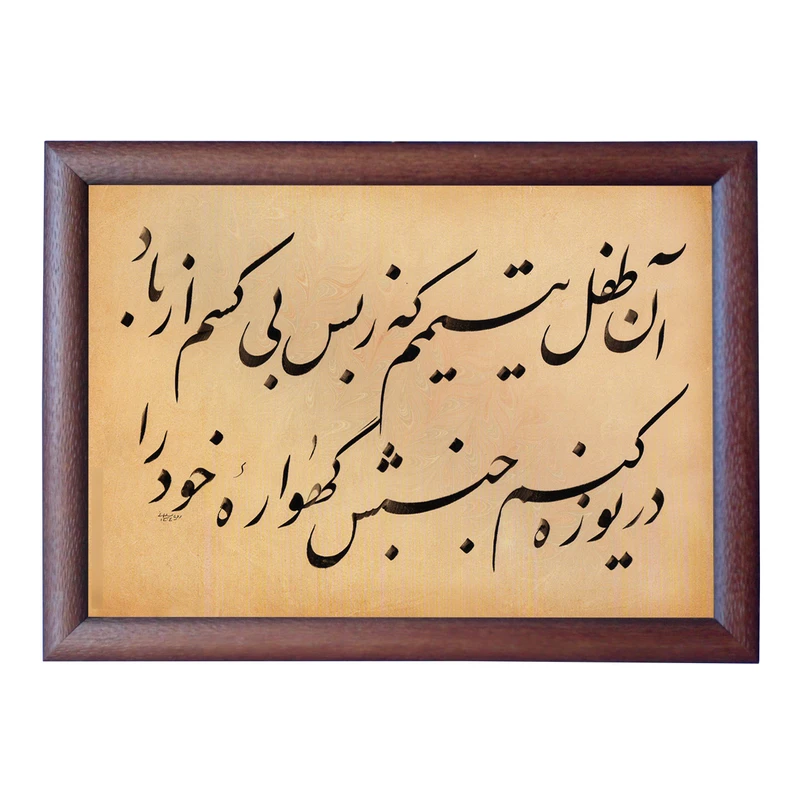 آن طفل یتیمم که ز بس بی کسم از باد
دریوزه کنم جنبش گهوارهٔ خود را